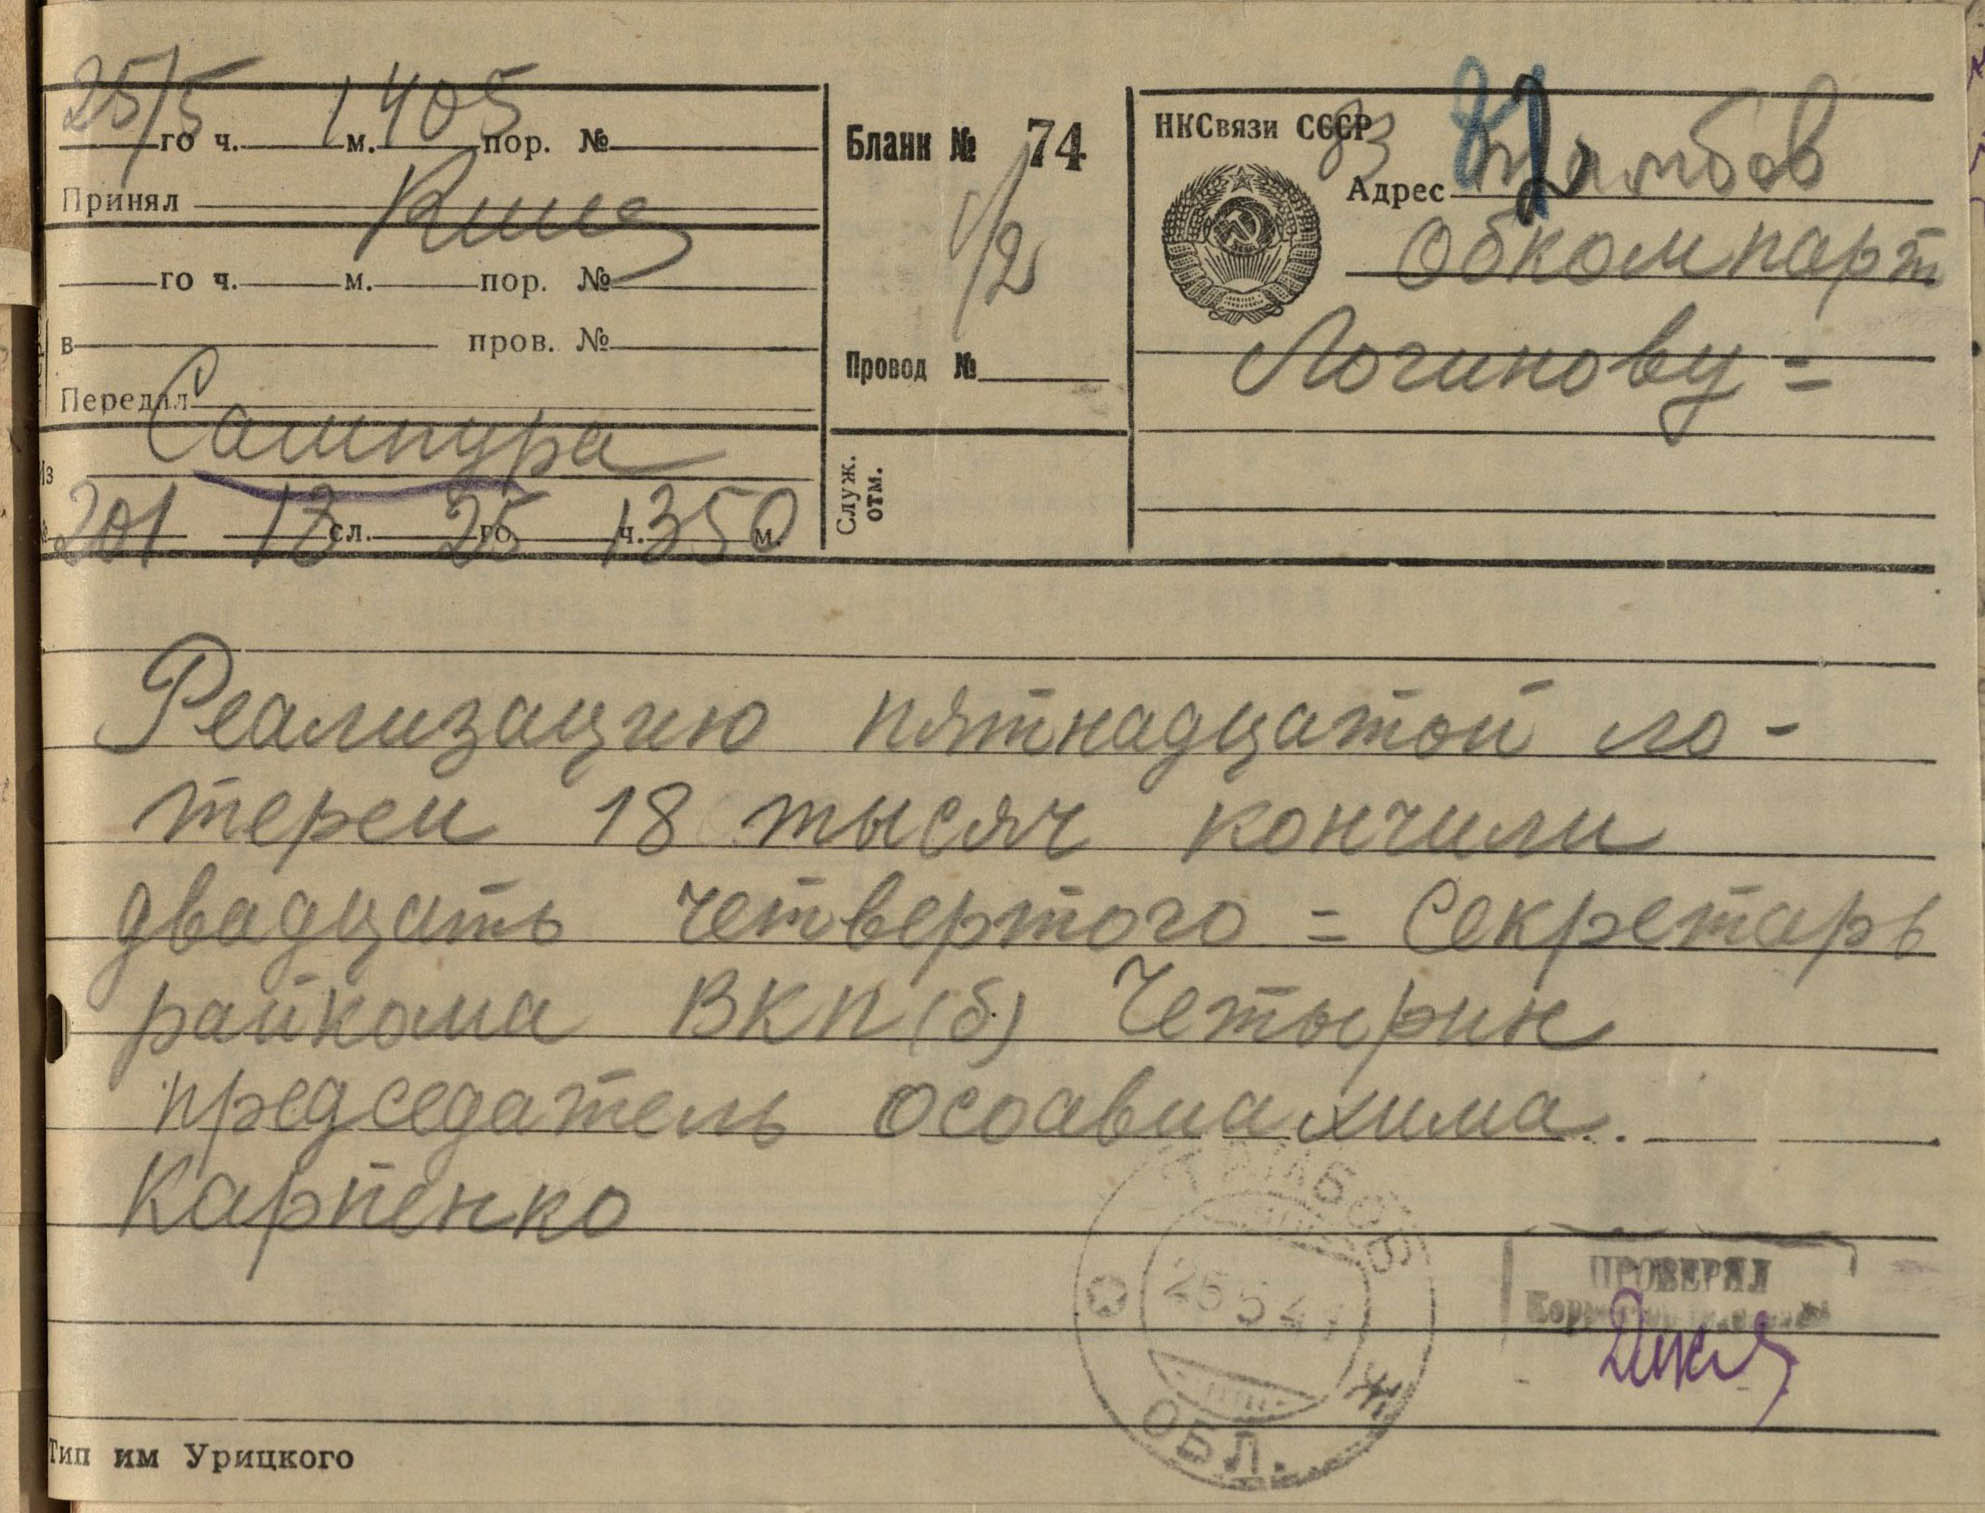 25/5 1405
го ч. м. пор. №
Принял
го ч. м. пор. №
в пров. №
Передал
Из Сампура
201 13 сл. 25 го ч. 1350 м.
Бланк № 74
1/2
Провод №
Служ. отм.
НКСвязи СССР
83
Адрес Тамбов
Обкомпарт
Логинову =
Реализацию пятнадцатой ло-
тереи 18 тысяч кончили
двадцать четвертого = Секретарь
райкома ВКП(б) Четырин
председатель осоавиахима
Карпенко
ТАМБОВ
25 5 41
ОБЛ.
ПРОВЕРЯЛ
Тип им Урицкого